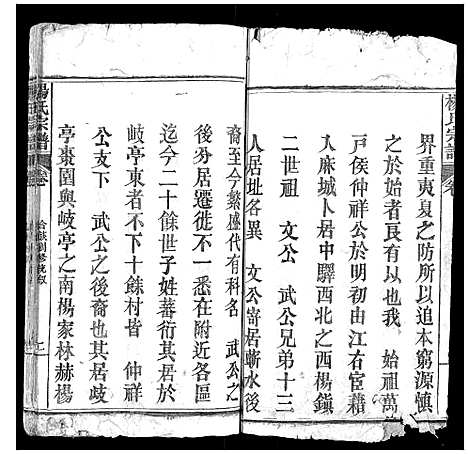 楊氏宗譜 卷
界重夷夏之防所以追本窮源慎
之於始者良有以也我 始祖萬
戸侯仲祥公於明初由江右宦籍
入麻城卜居中驛西北之西楊鎮
二世祖 文公 武公兄弟十三
人居址各異 文公寄居蘄水後
裔至今繁盛代有科名 武公之
後分居遷徙不一悉在附近各區
迄今二十餘世子姓蕃衍其居於
岐亭東者不下十餘村皆 仲祥
公支下 武公之後裔也其居歧
亭棗園與岐亭之南楊家林赫楊
楊氏宗譜 卷